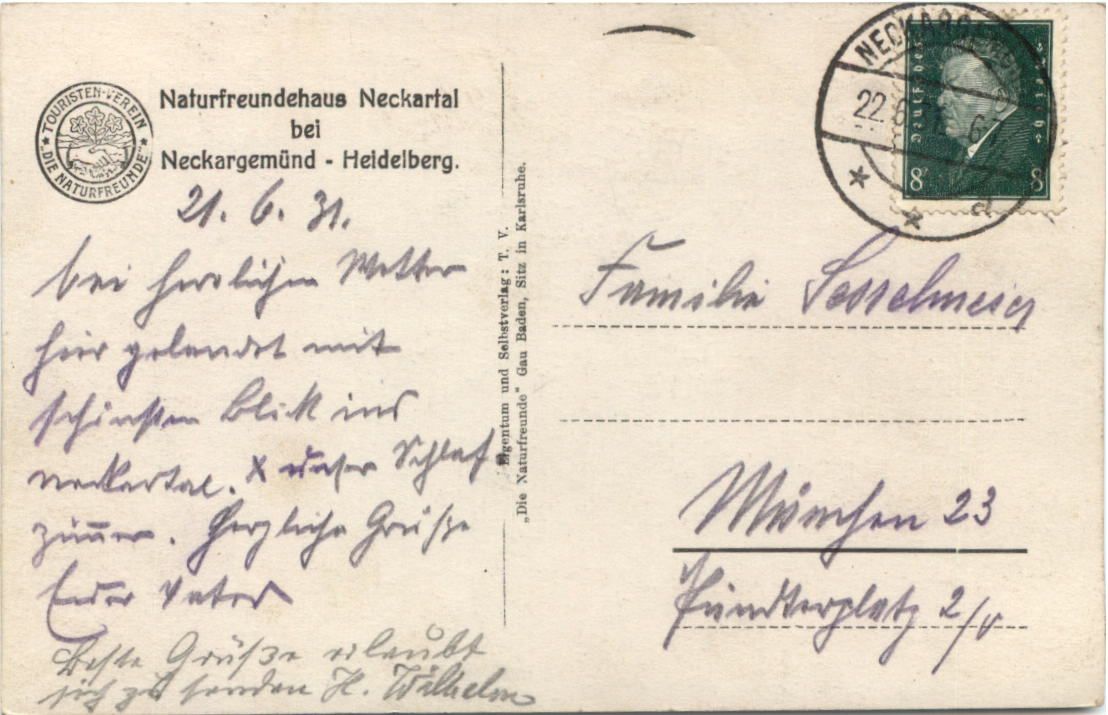 TOURISTEN-VEREIN
"DIE NATURFREUNDE"
Naturfreundehaus Neckartal
bei
Neckargemünd - Heidelberg.
21. 6. 31.
bei herrlichem Wetter
hier gelandet mit
schönsten Blick ins
Neckartal. X unser Schlaf
zimmer. Herzliche Grüße
Euer Vater
Beste Grüße erlaubt
sich zu senden H. Wilhelm
Eigentum und Selbstverlag: T. V.
„Die Naturfreunde" Gau Baden, Sitz in Karlsruhe.
22.6.
Deutsches Reich
8 8
Familie Sesselmeier
München 23
Fündterplatz 2/V